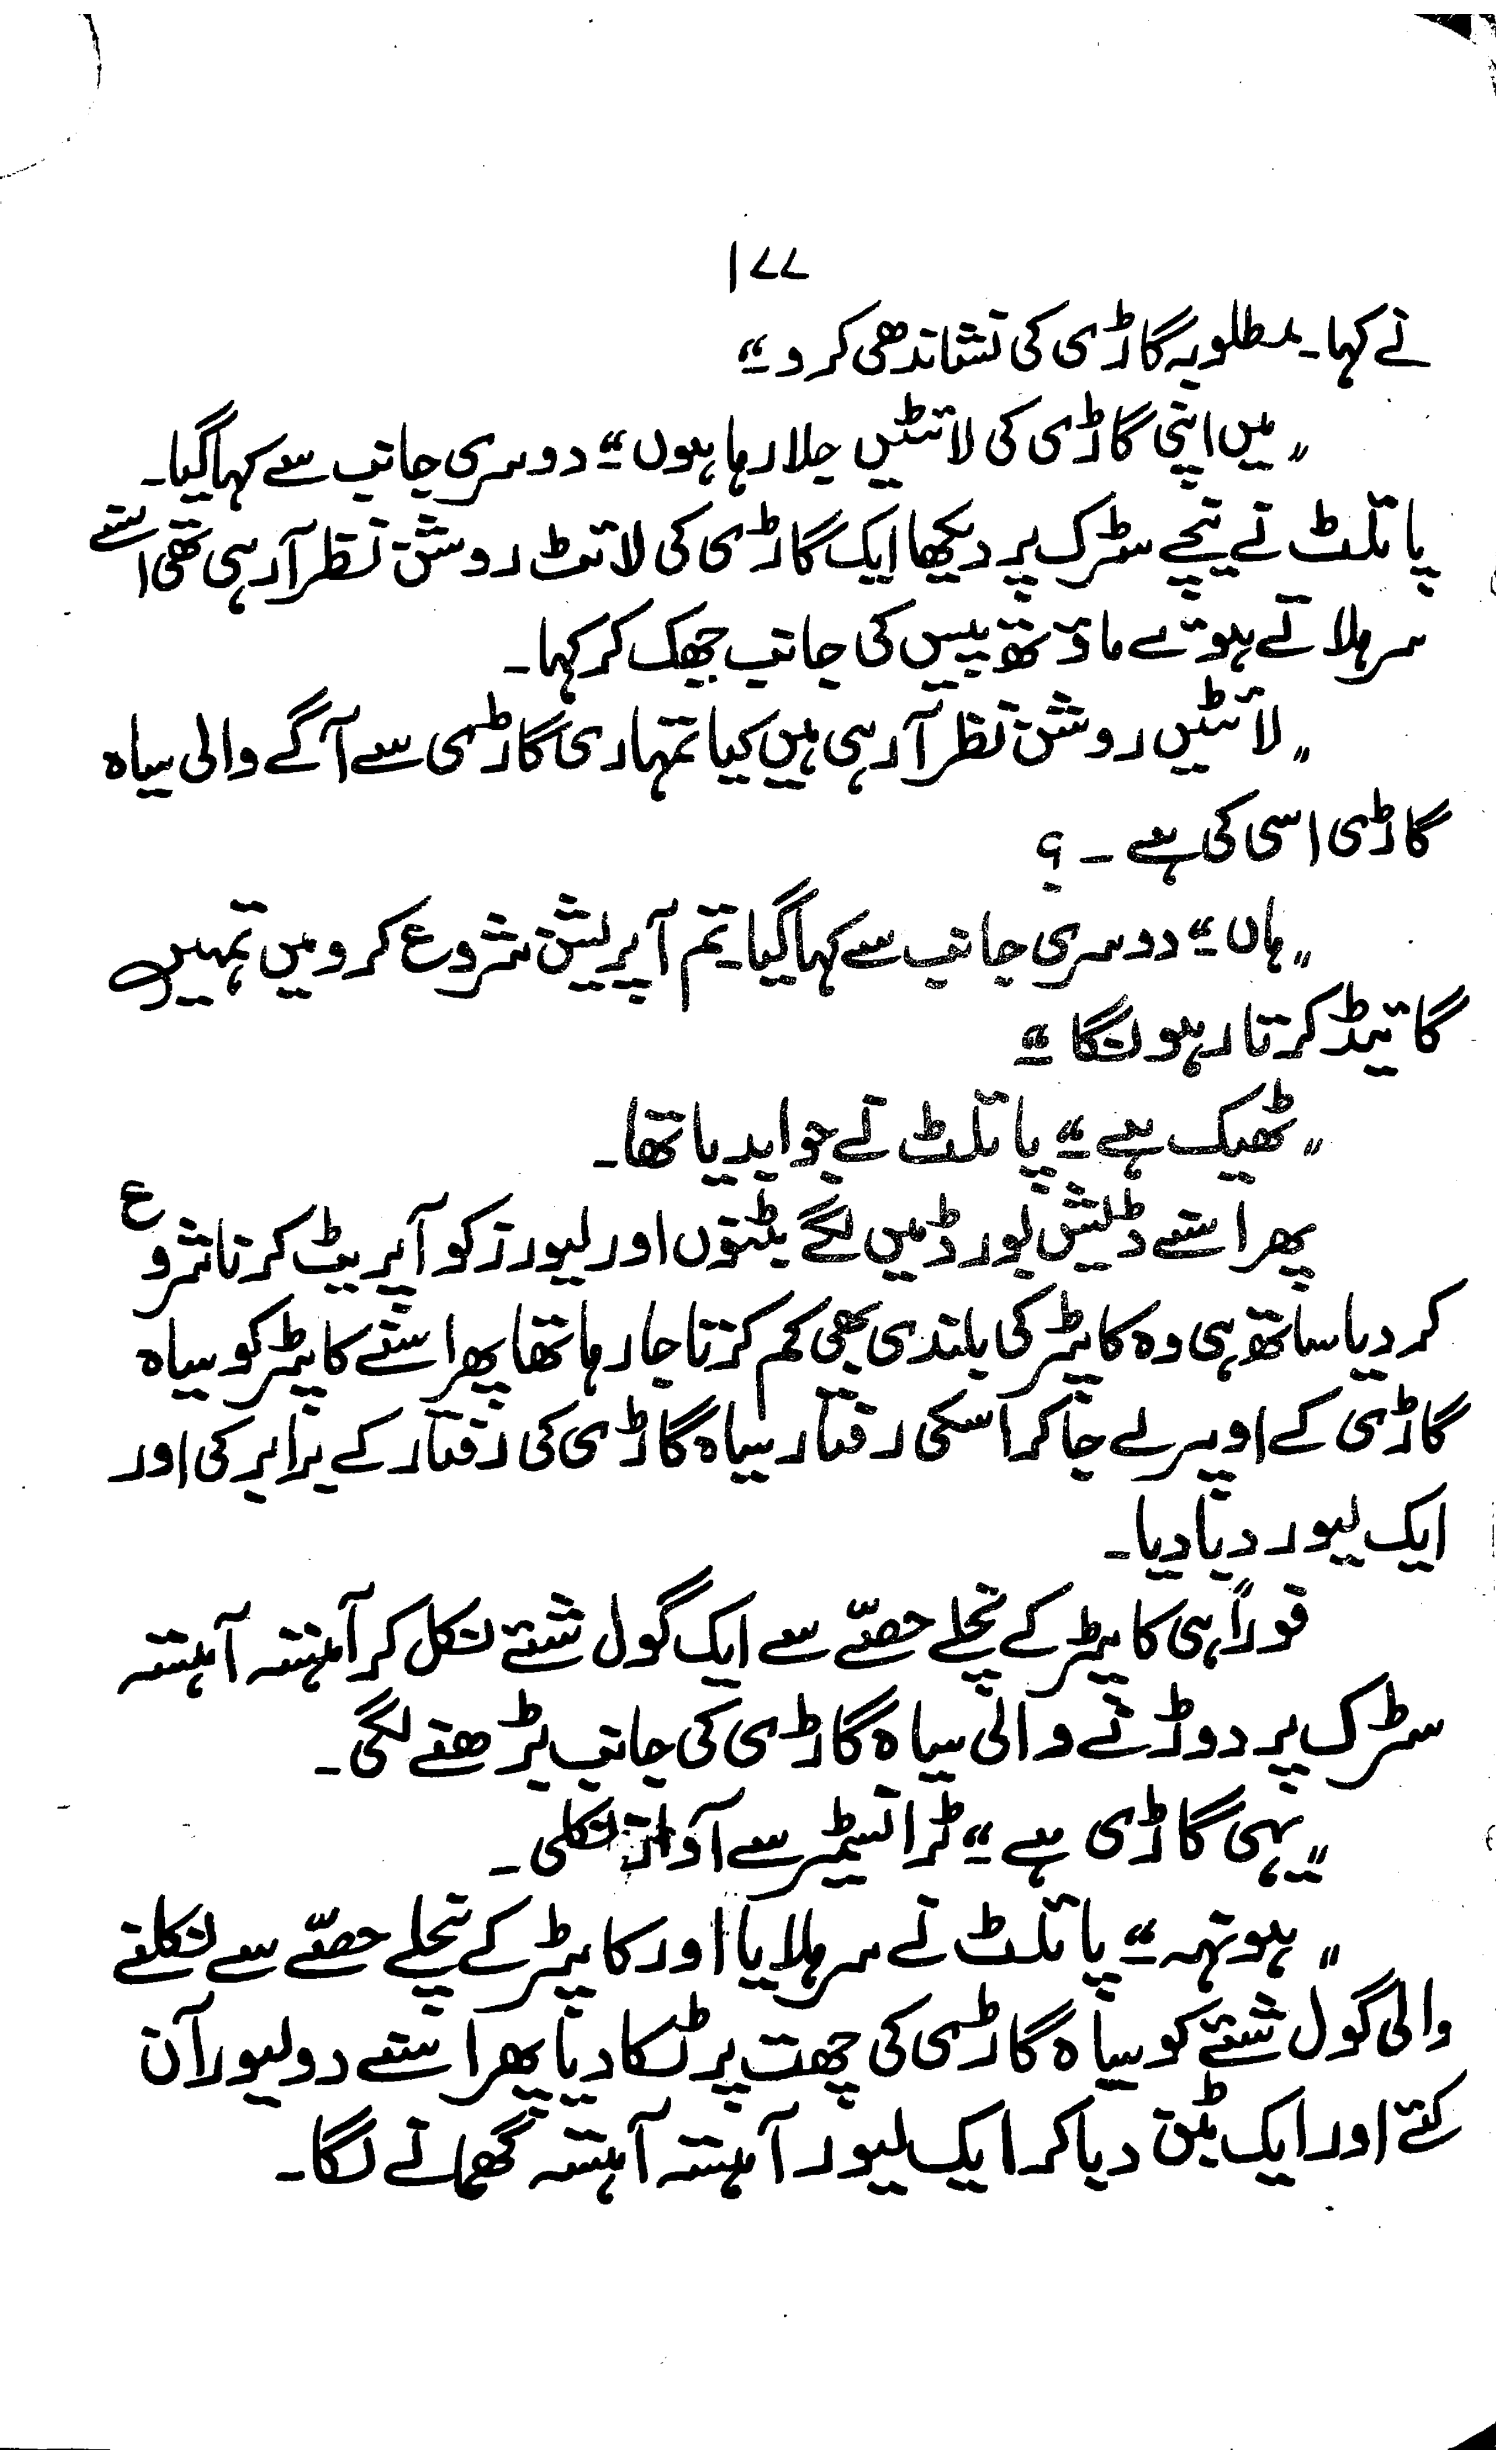 ۱۷۷
نے کہا۔ مطلوبہ گاڑی کی نشاندھی کرو۔"
"میں اپنی گاڑی کی لائٹیں جلا رہا ہوں۔" دوسری جانب سے کہا گیا۔
پائلٹ نے نیچے سڑک پر دیکھا ایک گاڑی کی لائٹ روشن نظر آ رہی تھی اسنے
سر ہلاتے ہوئے ماؤتھ پیس کی جانب جھک کر کہا۔
"لائٹیں روشن نظر آ رہی ہیں کیا تمہاری گاڑی سے آگے والی سیاہ
گاڑی اسی کی ہے ۔ ؟
"ہاں۔" دوسری جانب سے کہا گیا۔ تم آپریشن شروع کرو میں تمہیں
گائیڈ کرتا رہونگا۔"
"ٹھیک ہے۔" پائلٹ نے جواب دیا تھا۔
پھر اسنے ڈیش بورڈ میں لگے بٹنوں اور لیورز کو آپریٹ کرنا شروع
کر دیا ساتھ ہی وہ کاپٹر کی بلندی بھی کم کرتا جا رہا تھا پھر اسنے کاپٹر کو سیاہ
گاڑی کے اوپر لے جا کر اسکی رفتار سیاہ گاڑی کی رفتار کے برابر کی اور
ایک لیور دبا دیا۔
فوراً ہی کاپٹر کے نچلے حصّے سے ایک گول شئے نکل کر آہستہ آہستہ
سڑک پر دوڑنے والی سیاہ گاڑی کی جانب بڑھنے لگی۔
"یہی گاڑی ہے۔" ٹرانسمیٹر سے آواز نکلی۔
"ہونہہ۔" پائلٹ نے سر ہلایا اور کاپٹر کے نچلے حصّے سے نکلنے
والی گول شئے کو سیاہ گاڑی کی چھت پر ٹکا دیا پھر اسنے دو لیور آن
کئے اور ایک بٹن دبا کر ایک لیور آہستہ آہستہ گھمانے لگا۔